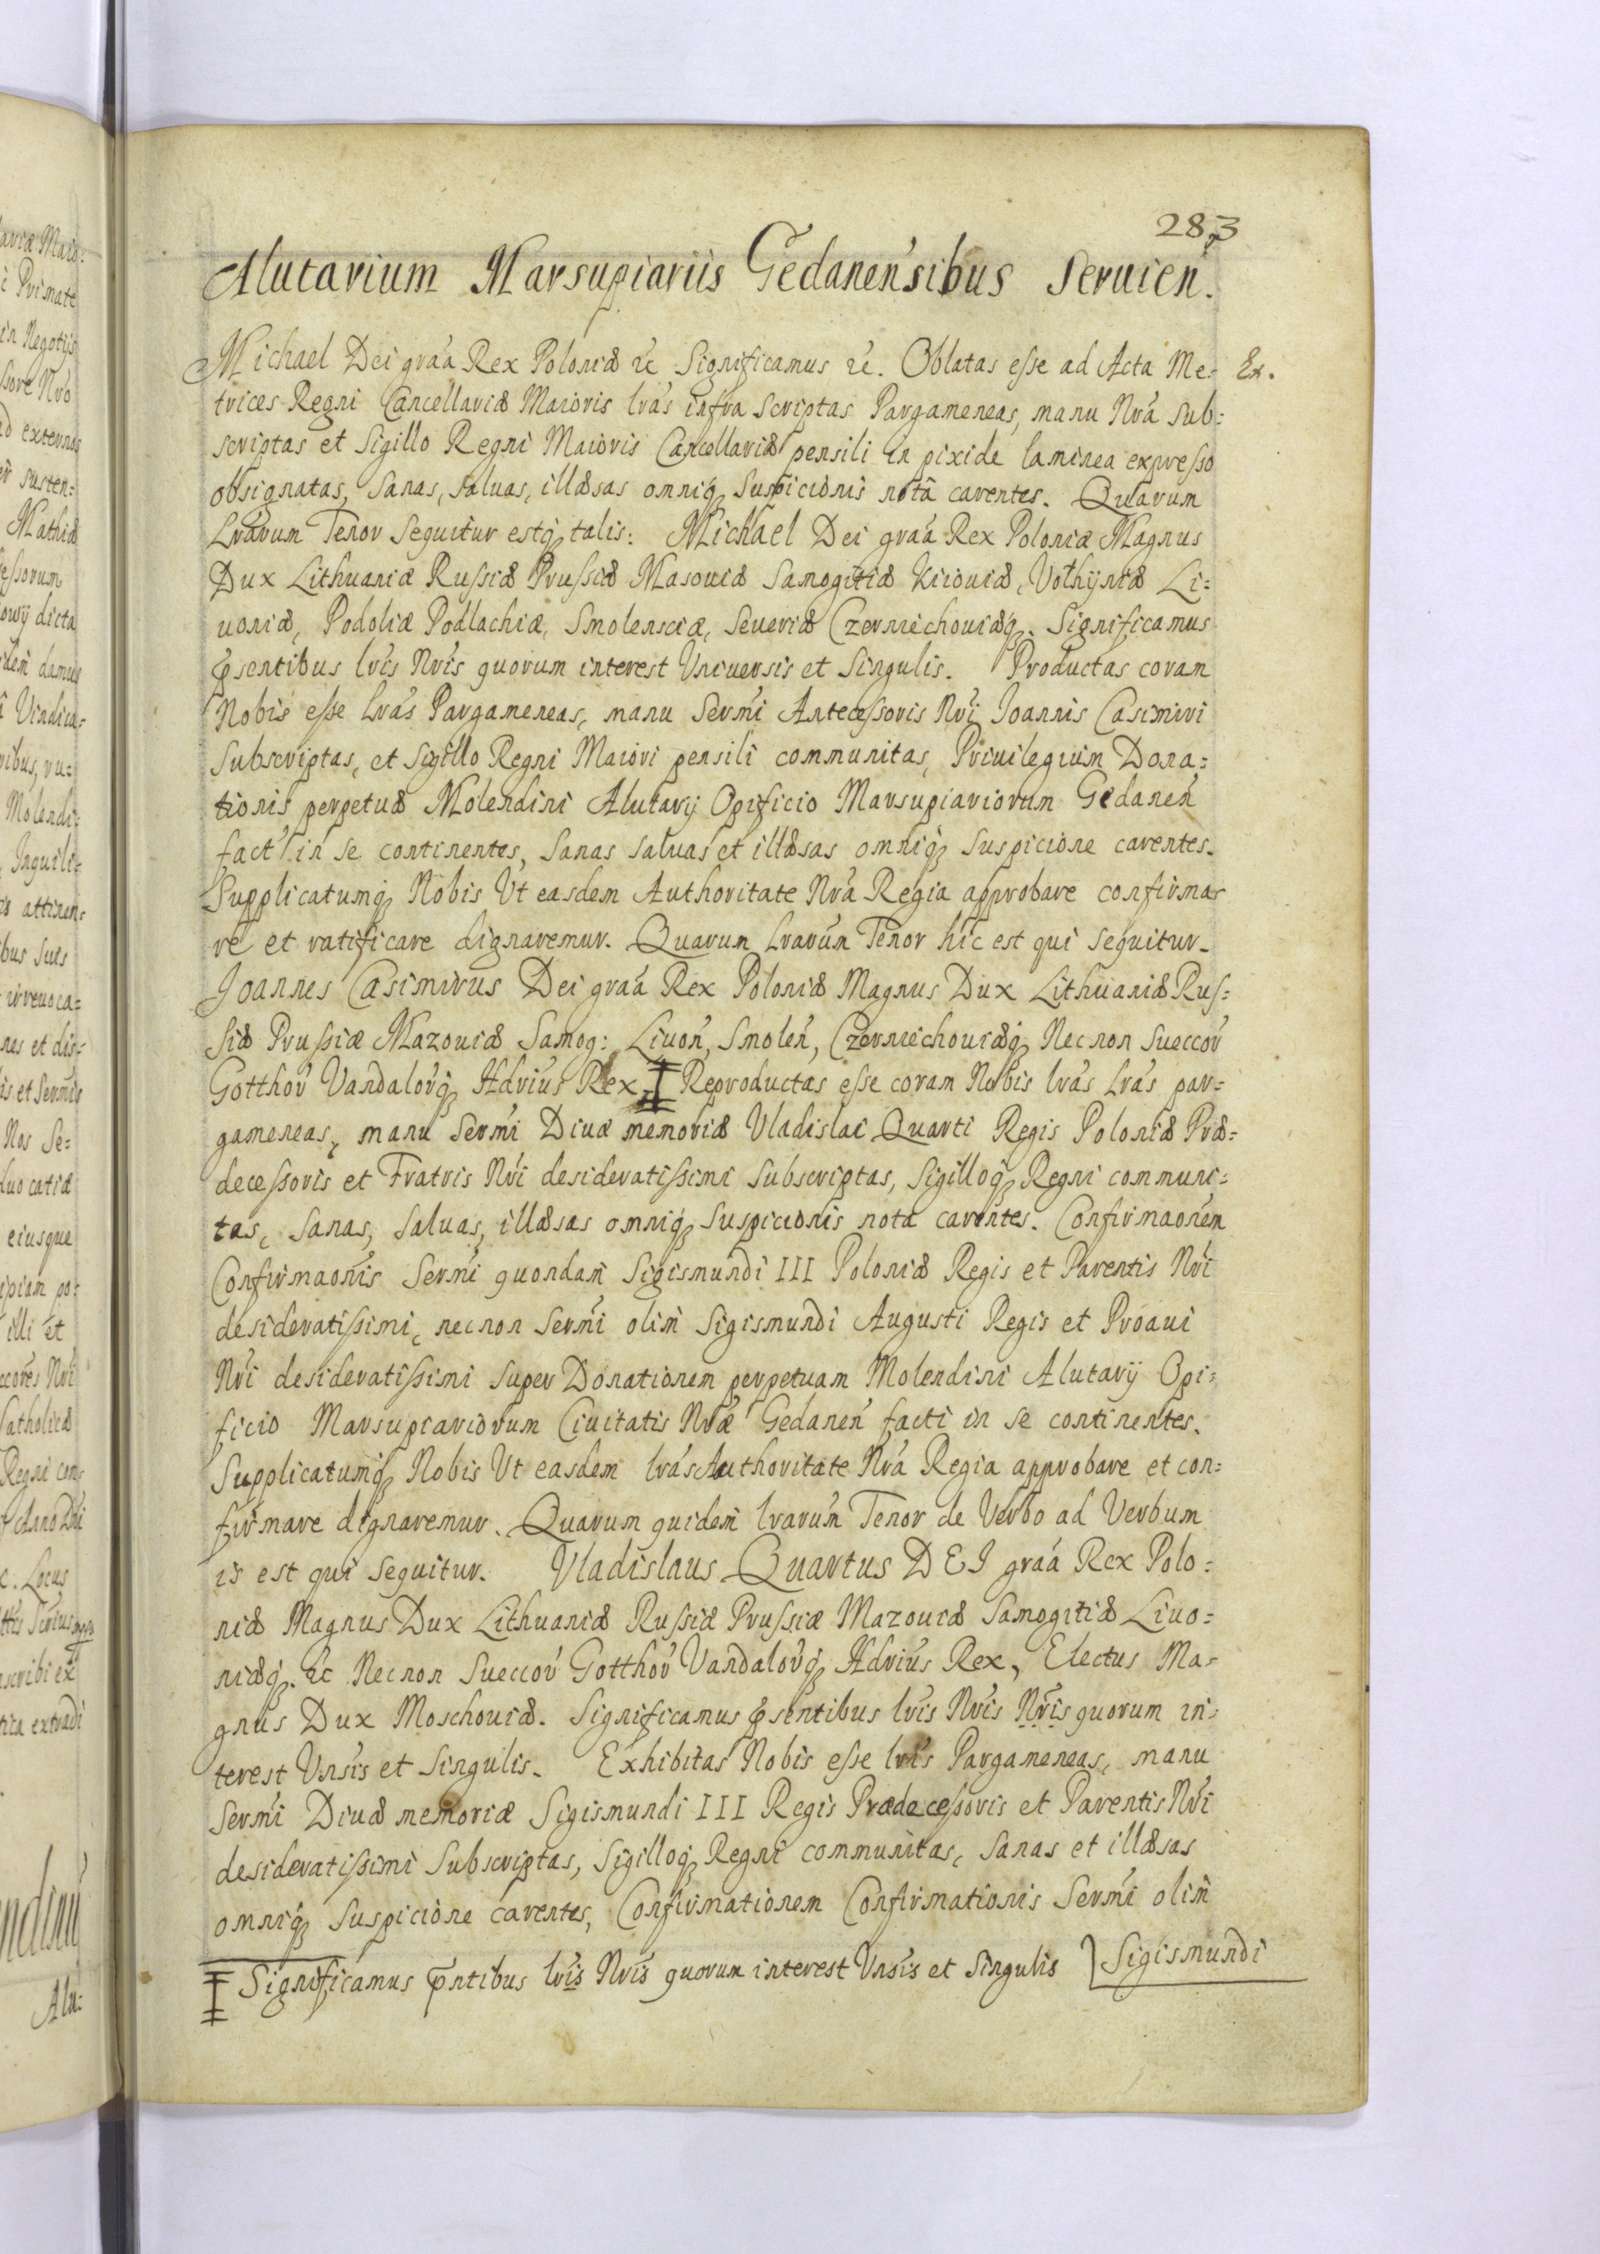 283
Alutarium Marsupiariis Gedanensibus Seruien.
Michael Dei graã Rex Poloniæ &c Significamus &c. Oblatas esse ad Acta Me= Ex.
trices Regni Cancellariæ Maioris lrãs infra scriptas Pargameneas, manu Nrã sub=
scriptas et Sigillo Regni Maioris Cancellariæ pensili in pixide laminea expresso
obsignatas, sanas, saluas, illæsas omniq; suspicionis notâ carentes. Quarum
Lrarum Tenor sequitur estq; talis: Michael Dei graã Rex Poloniæ Magnus
Dux Lithuaniæ Russiæ Prussiæ Masouiæ Samogitiæ Kiiouiæ, Volhÿniæ Li=
uoniæ, Podoliæ Podlachiæ, Smolensciæ, Seueriæ Czerniechouiæq;. Significamus
p̃sentibus lrĩs Nrĩs quorum interest Uniuersis et singulis. Productas coram
Nobis esse lrãs Pargameneas, manu Sermĩ Antecessoris Nrĩ Joannis Casimiri
subscriptas, et Sigillo Regni Maiori pensili communitas, Priuilegium Dona=
tionis perpetuæ Molendini Alutarÿ Opificio Marsupiariorum Gedaneñ
fact in se continentes, sanas saluas et illæsas omniq; suspicione carentes.
Supplicatumq; Nobis Ut easdem Authoritate Nrã Regia approbare confirma=
re et ratificare dignaremur. Quarum lrarum Tenor hic est qui sequitur.
Joannes Casimirus Dei graã Rex Poloniæ Magnus Dux Lithuaniæ Rus=
siæ Prussiæ Mazouiæ Samog: Liuoñ, Smoleñ, Czerniechouiæq; Necnon Sueccor̃
Gotthor̃ Vandalor̃q; Hdrius Rex ‡ Reproductas esse coram Nobis lrãs lrãs par=
gameneas, manu Sermĩ Diuæ memoriæ Vladislai Quarti Regis Poloniæ Præ=
decessoris et Fratris Nrĩ desideratissimi subscriptas, Sigilloq; Regni communi=
tas, sanas, saluas, illæsas omniq; suspicionis nota carentes. Confirmaonẽm
Confirmaonĩs Sermĩ quondam Sigismundi III Poloniæ Regis et Parentis Nrĩ
desideratissimi, necnon Sermĩ olim Sigismundi Augusti Regis et Proaui
Nrĩ desideratissimi super Donationem perpetuam Molendini Alutarÿ Opi=
ficio Marsupiariorum Ciuitatis Nræ Gedaneñ facti in se continentes.
Supplicatumq; Nobis Ut easdem lrãs Authoritate Nrã Regia approbare et con=
firmare dignaremur. Quarum quidem lrarum Tenor de Verbo ad Verbum
is est qui sequitur. Vladislaus Quartus DEI graã Rex Polo=
niæ Magnus Dux Lithuaniæ Russiæ Prussiæ Mazouiæ Samogitiæ Liuo=
niæq; &c Necnon Sueccor̃ Gotthor̃ Vandalor̃q; Hdrius Rex, Electus Ma=
gnus Dux Moschouiæ. Significamus p̃sentibus lrĩs Nrĩs Nrĩs quorum in=
terest Unsis et Singulis. Exhibitas Nobis esse lrãs Pargameneas, manu
Sermĩ Diuæ memoriæ Sigismundi III Regis Prædecessoris et Parentis Nrĩ
desideratissimi subscriptas, Sigilloq; Regni communitas, sanas et illæsas
omniq; suspicione carentes, Confirmationem Confirmationis Sermĩ olim
‡ Significamus p̃ntibus lrĩs Nrĩs quorum interest Unsis et singulis Sigismundi